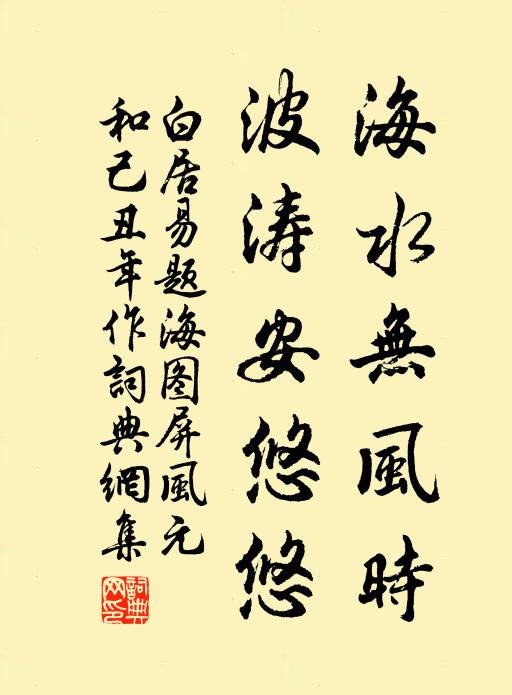 海水無風時
波涛安悠悠
白居易题海图屏風元
和己丑年作詞典網集
詞典网印